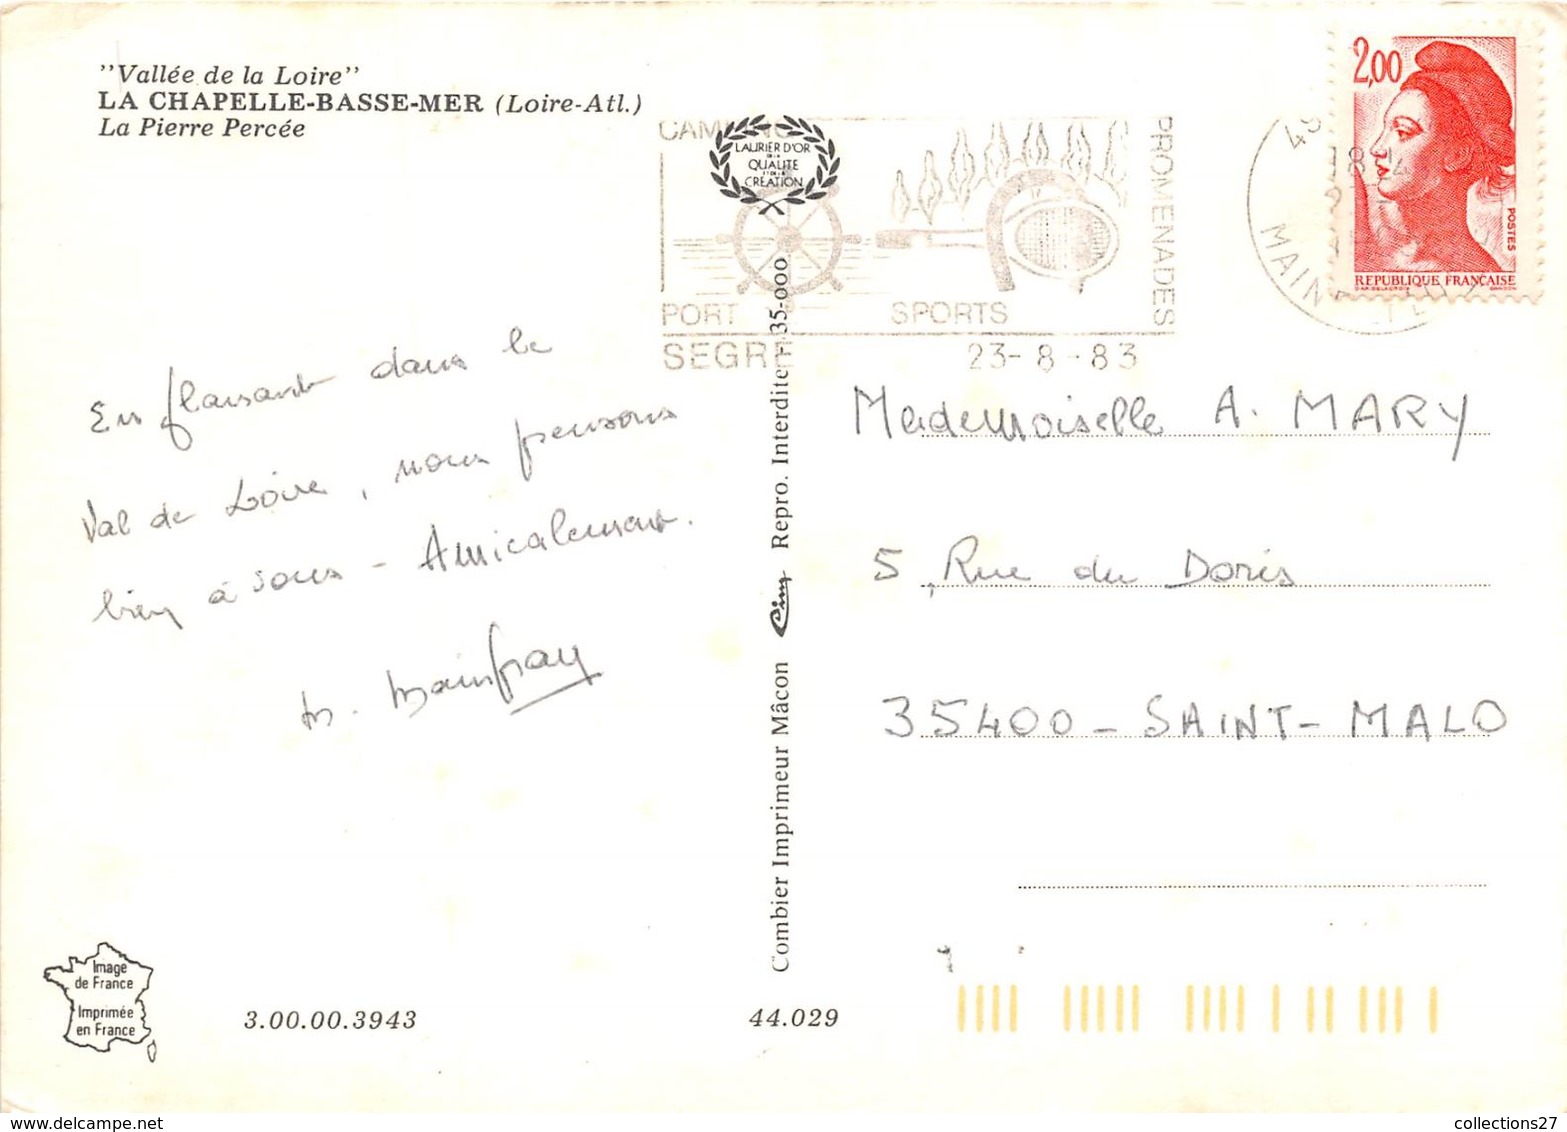 "Vallée de la Loire"
LA CHAPELLE-BASSE-MER (Loire-Atl.)
La Pierre Percée
LAURIER D'OR
DE LA
QUALITE
ET DE LA
CREATION
PORT
SPORTS
PROMENADES
SEGRE
23-8-83
18
MAINE
2,00
POSTES
REPUBLIQUE FRANÇAISE
En flanant dans le
Val de Loire, nous pensons
bien à vous - Amicalement.
M. Mainfray
Mademoiselle A. MARY
5, Rue du Doris
35400 - SAINT-MALO
Combier Imprimeur Mâcon Cim Repro. Interdite F 35-000
Image
de France
Imprimée
en France
3.00.00.3943
44.029
collections27